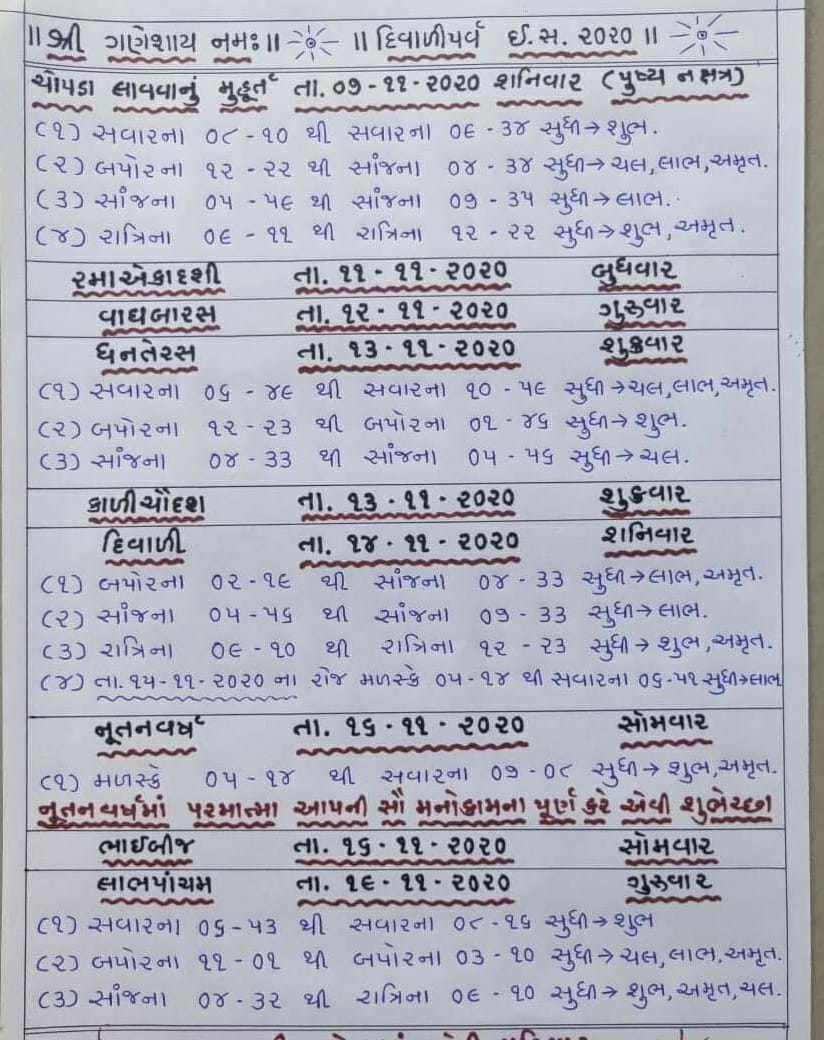 ॥ શ્રી ગણેશાય નમઃ ॥ ॥ દિવાળીપર્વ ઈ.સ. ૨૦૨૦ ॥
ચોપડા લાવવાનું મુહૂર્ત તા. ૦૭-૧૧-૨૦૨૦ શનિવાર (પુષ્ય નક્ષત્ર)
(૧) સવારના ૦૮ - ૧૦ થી સવારના ૦૯ - ૩૪ સુધી → શુભ.
(૨) બપોરના ૧૨ - ૨૨ થી સાંજના ૦૪ - ૩૪ સુધી → ચલ, લાભ, અમૃત.
(૩) સાંજના ૦૫ - ૫૯ થી સાંજના ૦૭ - ૩૫ સુધી → લાભ.
(૪) રાત્રિના ૦૯ - ૧૧ થી રાત્રિના ૧૨ - ૨૨ સુધી → શુભ, અમૃત.
રમાએકાદશી તા. ૧૧ - ૧૧ - ૨૦૨૦ બુધવાર
વાઘબારસ તા. ૧૨ - ૧૧ - ૨૦૨૦ ગુરુવાર
ધનતેરસ તા. ૧૩ - ૧૧ - ૨૦૨૦ શુક્રવાર
(૧) સવારના ૦૬ - ૪૯ થી સવારના ૧૦ - ૫૯ સુધી → ચલ, લાભ, અમૃત.
(૨) બપોરના ૧૨ - ૨૩ થી બપોરના ૦૧ - ૪૬ સુધી → શુભ.
(૩) સાંજના ૦૪ - ૩૩ થી સાંજના ૦૫ - ૫૬ સુધી → ચલ.
કાળીચૌદશ તા. ૧૩ - ૧૧ - ૨૦૨૦ શુક્રવાર
દિવાળી તા. ૧૪ - ૧૧ - ૨૦૨૦ શનિવાર
(૧) બપોરના ૦૨ - ૧૯ થી સાંજના ૦૪ - ૩૩ સુધી → લાભ, અમૃત.
(૨) સાંજના ૦૫ - ૫૬ થી સાંજના ૦૭ - ૩૩ સુધી → લાભ.
(૩) રાત્રિના ૦૯ - ૧૦ થી રાત્રિના ૧૨ - ૨૩ સુધી → શુભ, અમૃત.
(૪) તા. ૧૫-૧૧-૨૦૨૦ ના રોજ મળસ્કે ૦૫-૧૪ થી સવારના ૦૬-૫૧ સુધી → લાભ
નૂતનવર્ષ તા. ૧૬ - ૧૧ - ૨૦૨૦ સોમવાર
(૧) મળસ્કે ૦૫ - ૧૪ થી સવારના ૦૭ - ૦૮ સુધી → શુભ, અમૃત.
નુતનવર્ષમાં પરમાત્મા આપની સૌ મનોકામના પૂર્ણ કરે એવી શુભેચ્છા
ભાઈબીજ તા. ૧૬ - ૧૧ - ૨૦૨૦ સોમવાર
લાભપાંચમ તા. ૧૯ - ૧૧ - ૨૦૨૦ ગુરુવાર
(૧) સવારના ૦૬ - ૫૩ થી સવારના ૦૮ - ૧૬ સુધી → શુભ
(૨) બપોરના ૧૧ - ૦૧ થી બપોરના ૦૩ - ૧૦ સુધી → ચલ, લાભ, અમૃત.
(૩) સાંજના ૦૪ - ૩૨ થી રાત્રિના ૦૯ - ૧૦ સુધી → શુભ, અમૃત, ચલ.